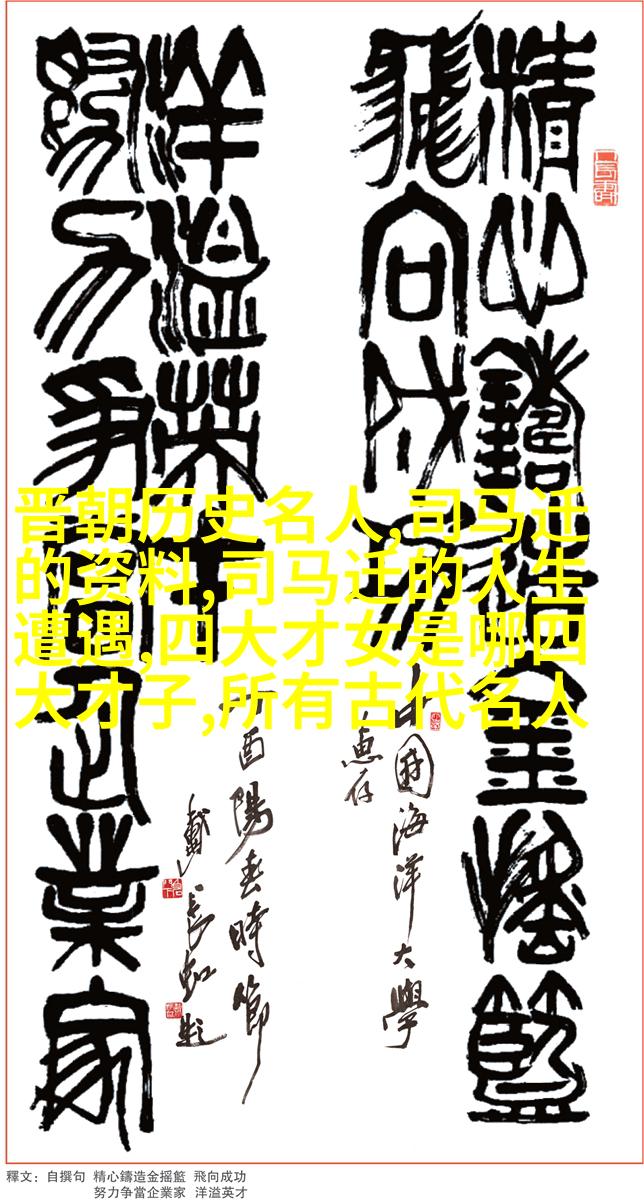 精心鑄造金搖籃
飛向成功
中國海洋大學
惠存
努力爭當企業家
洋溢英才
丁酉陽春時節
戴長虹題
晋朝历史名人,司马迁
的资料,司马迁的人生
遭遇,四大才女是哪四
大才子,所有古代名人
釋文：自撰句 精心鑄造金摇籃 飛向成功
努力争當企業家 洋溢英才